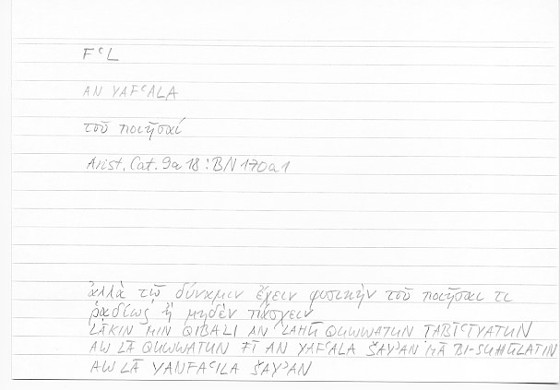 FʿL
AN YAFʿALA
τοῦ ποιῆσαί
Arist. Cat. 9a 18 : BN 170a1
ἀλλὰ τῷ δύναμιν ἔχειν φυσικὴν τοῦ ποιῆσαί τι
ῥᾳδίως ἢ μηδὲν πάσχειν
LĀKIN MIN QIBALI AN LAHŪ QUWWATUN ṬABĪʿĪYATUN
AW LĀ QUWWATUN FĪ AN YAFʿALA ŠAYʾAN MĀ BI-SUHŪLATIN
AW LĀ YANFAʿILA ŠAYʾAN